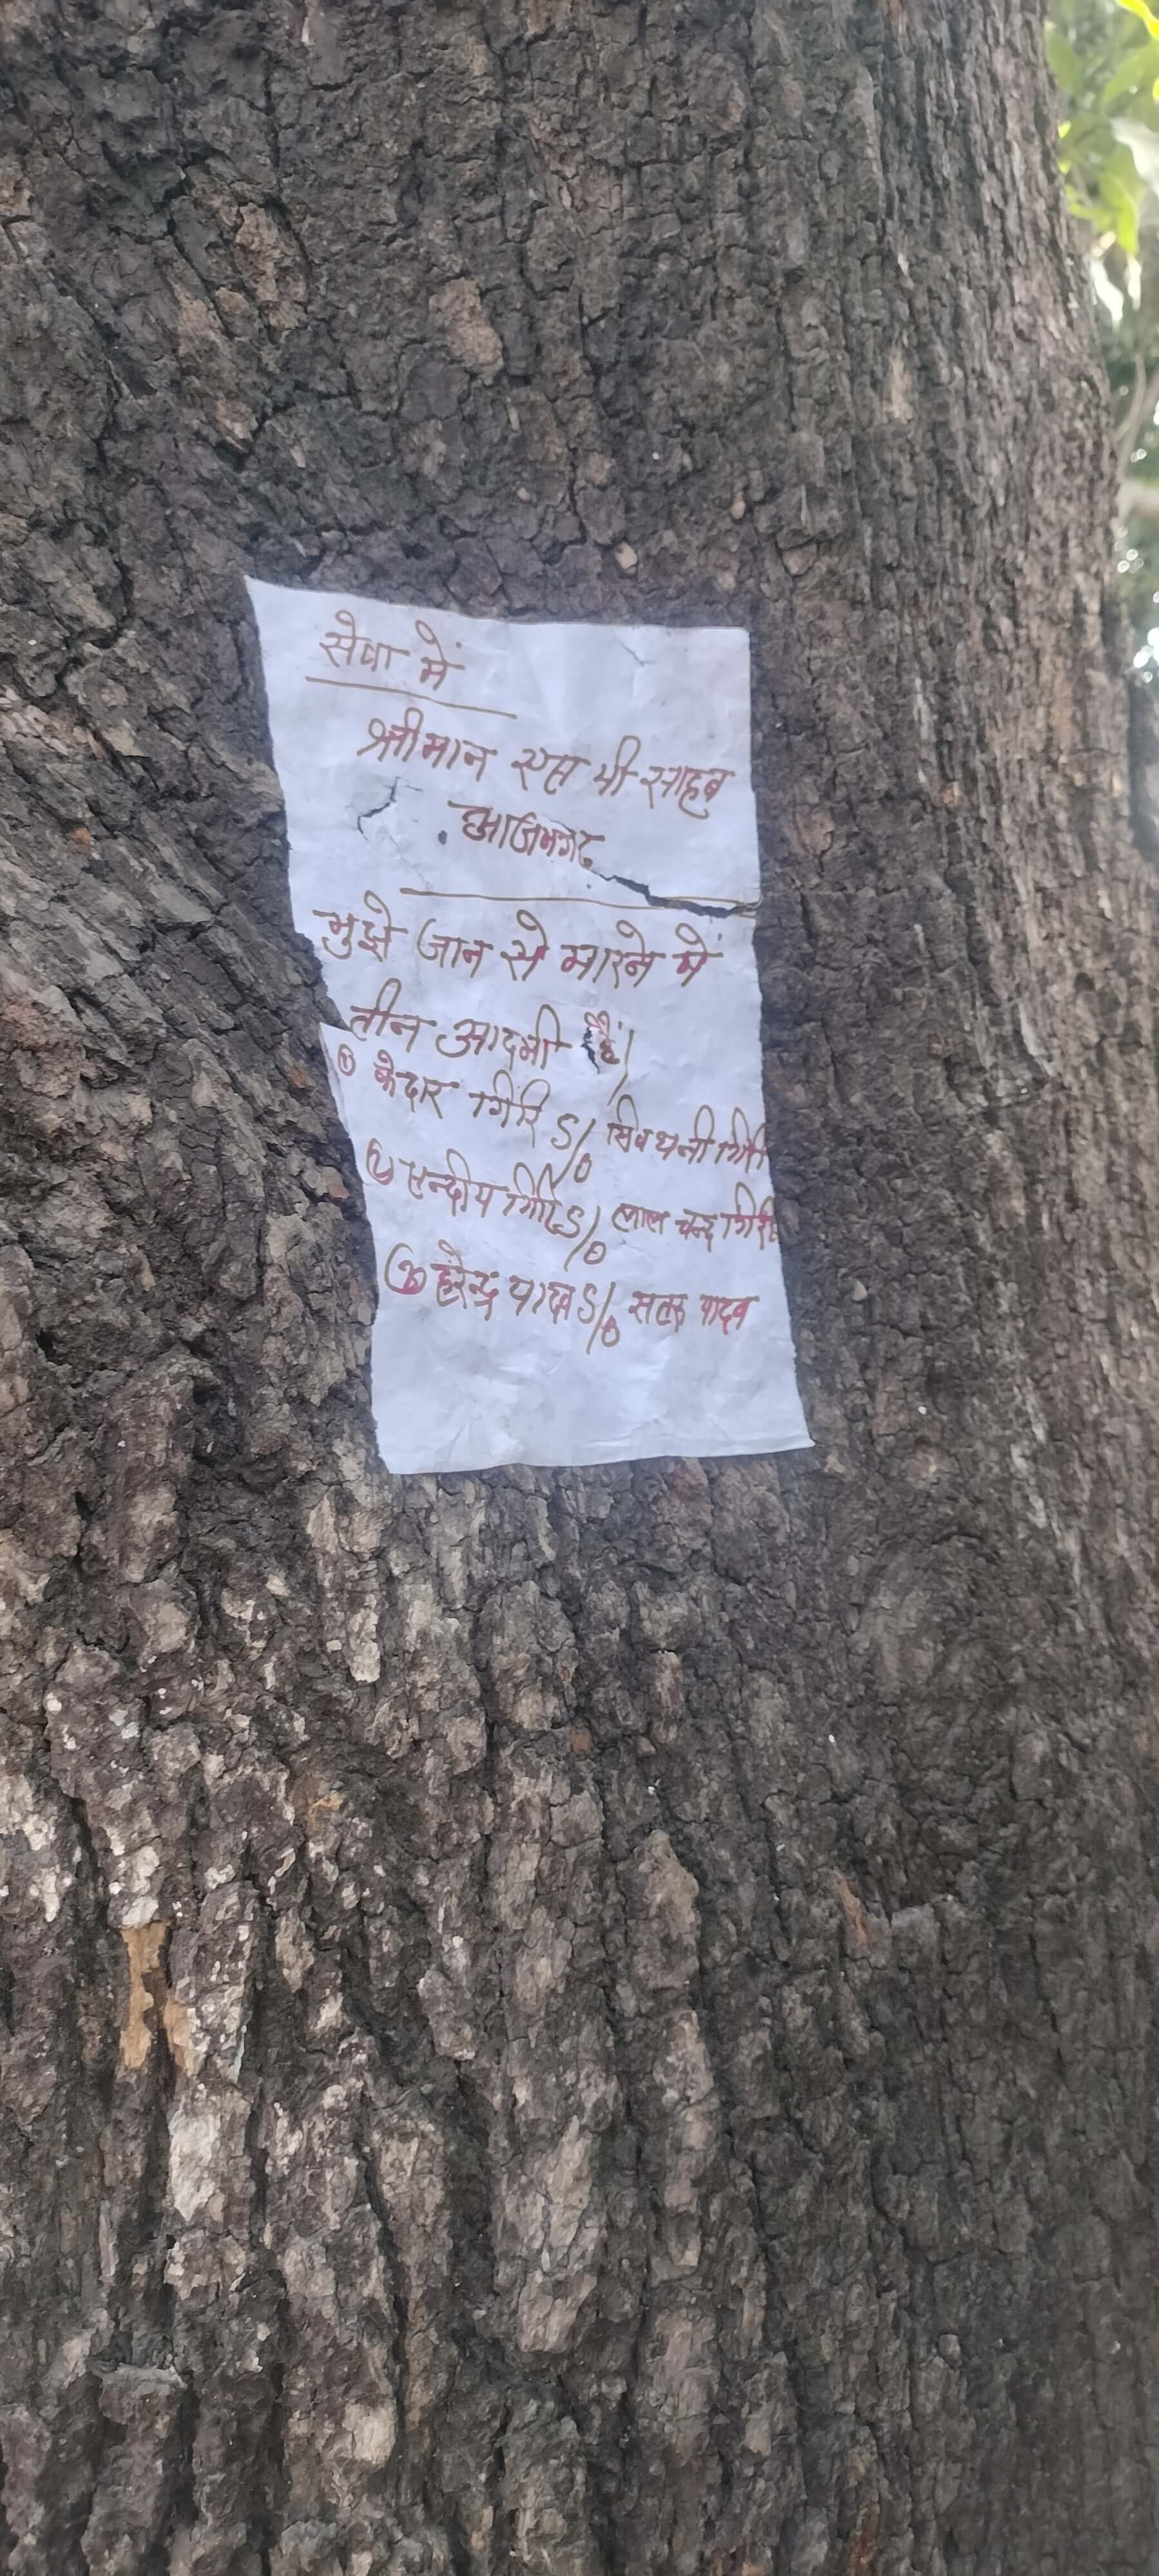 सेवा में
श्रीमान एस पी साहब
आजमगढ़
मुझे जान से मारने में
तीन आदमी हैं।
① केदार गिरि S/o सिवधनी गिरि
② सन्दीप गिरि S/o लाल चन्द गिरि
③ हरेन्द्र यादव S/o यादव